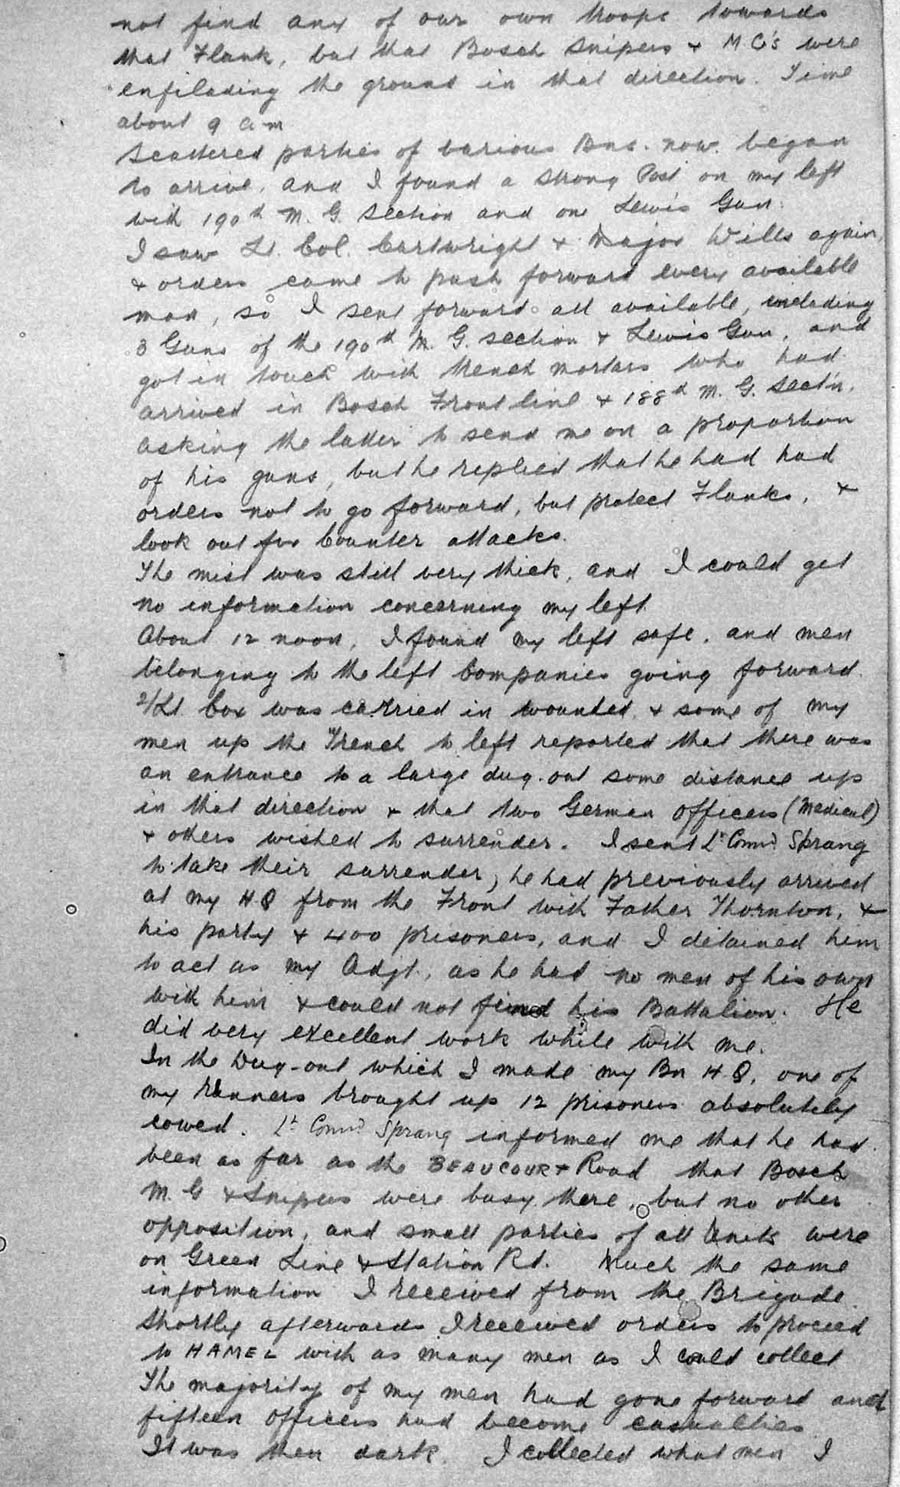 not find any of our own troops towards
that Flank, but that Bosch Snipers + M G's were
enfilading the ground in that direction. Time
about 9 am
Scattered parties of various Bns. now began
to arrive, and I found a strong Post on my left
with 190th M. G. Section and one Lewis Gun.
I saw Lt. Col. Cartwright + Major Wills again,
+ orders came to push forward every available
man, so I sent forward all available, including
3 Guns of the 190th M. G. section + Lewis Gun, and
got in touch with trench mortars who had
arrived in Bosch Front line + 188th M. G. Sect'n.
asking the latter to send me on a proportion
of his guns, but he replied that he had had
orders not to go forward, but protect Flanks, +
look out for Counter attacks.
The mist was still very thick, and I could get
no information concerning my left.
About 12 noon, I found my left safe, and men
belonging to the left Companies going forward.
2/Lt. Cox was carried in wounded, + some of my
men up the Trench to left reported that there was
an entrance to a large dug-out some distance up
in that direction + that two German Officers (Medical)
+ others wished to surrender. I sent Lt Comdr Sprang
to take their surrender; he had previously arrived
at my HQ from the Front with Father Thornton, +
his party + 400 prisoners, and I detained him
to act as my Adjt., as he had no men of his own
with him + could not find his Battalion. He
did very excellent work while with me.
In the Dug-out which I made my Bn H Q, one of
my runners brought up 12 prisoners absolutely
cowed. Lt Comdr Sprang informed me that he had
been as far as the BEAUCOURT Road that Bosch
M. G + Snipers were busy there, but no other
opposition, and small parties of all Units were
on Green Line + Station Rd. Much the same
information I received from the Brigade.
Shortly afterwards I received orders to proceed
to HAMEL with as many men as I could collect
The majority of my men had gone forward and
fifteen officers had become casualties.
It was then dark. I collected what men I